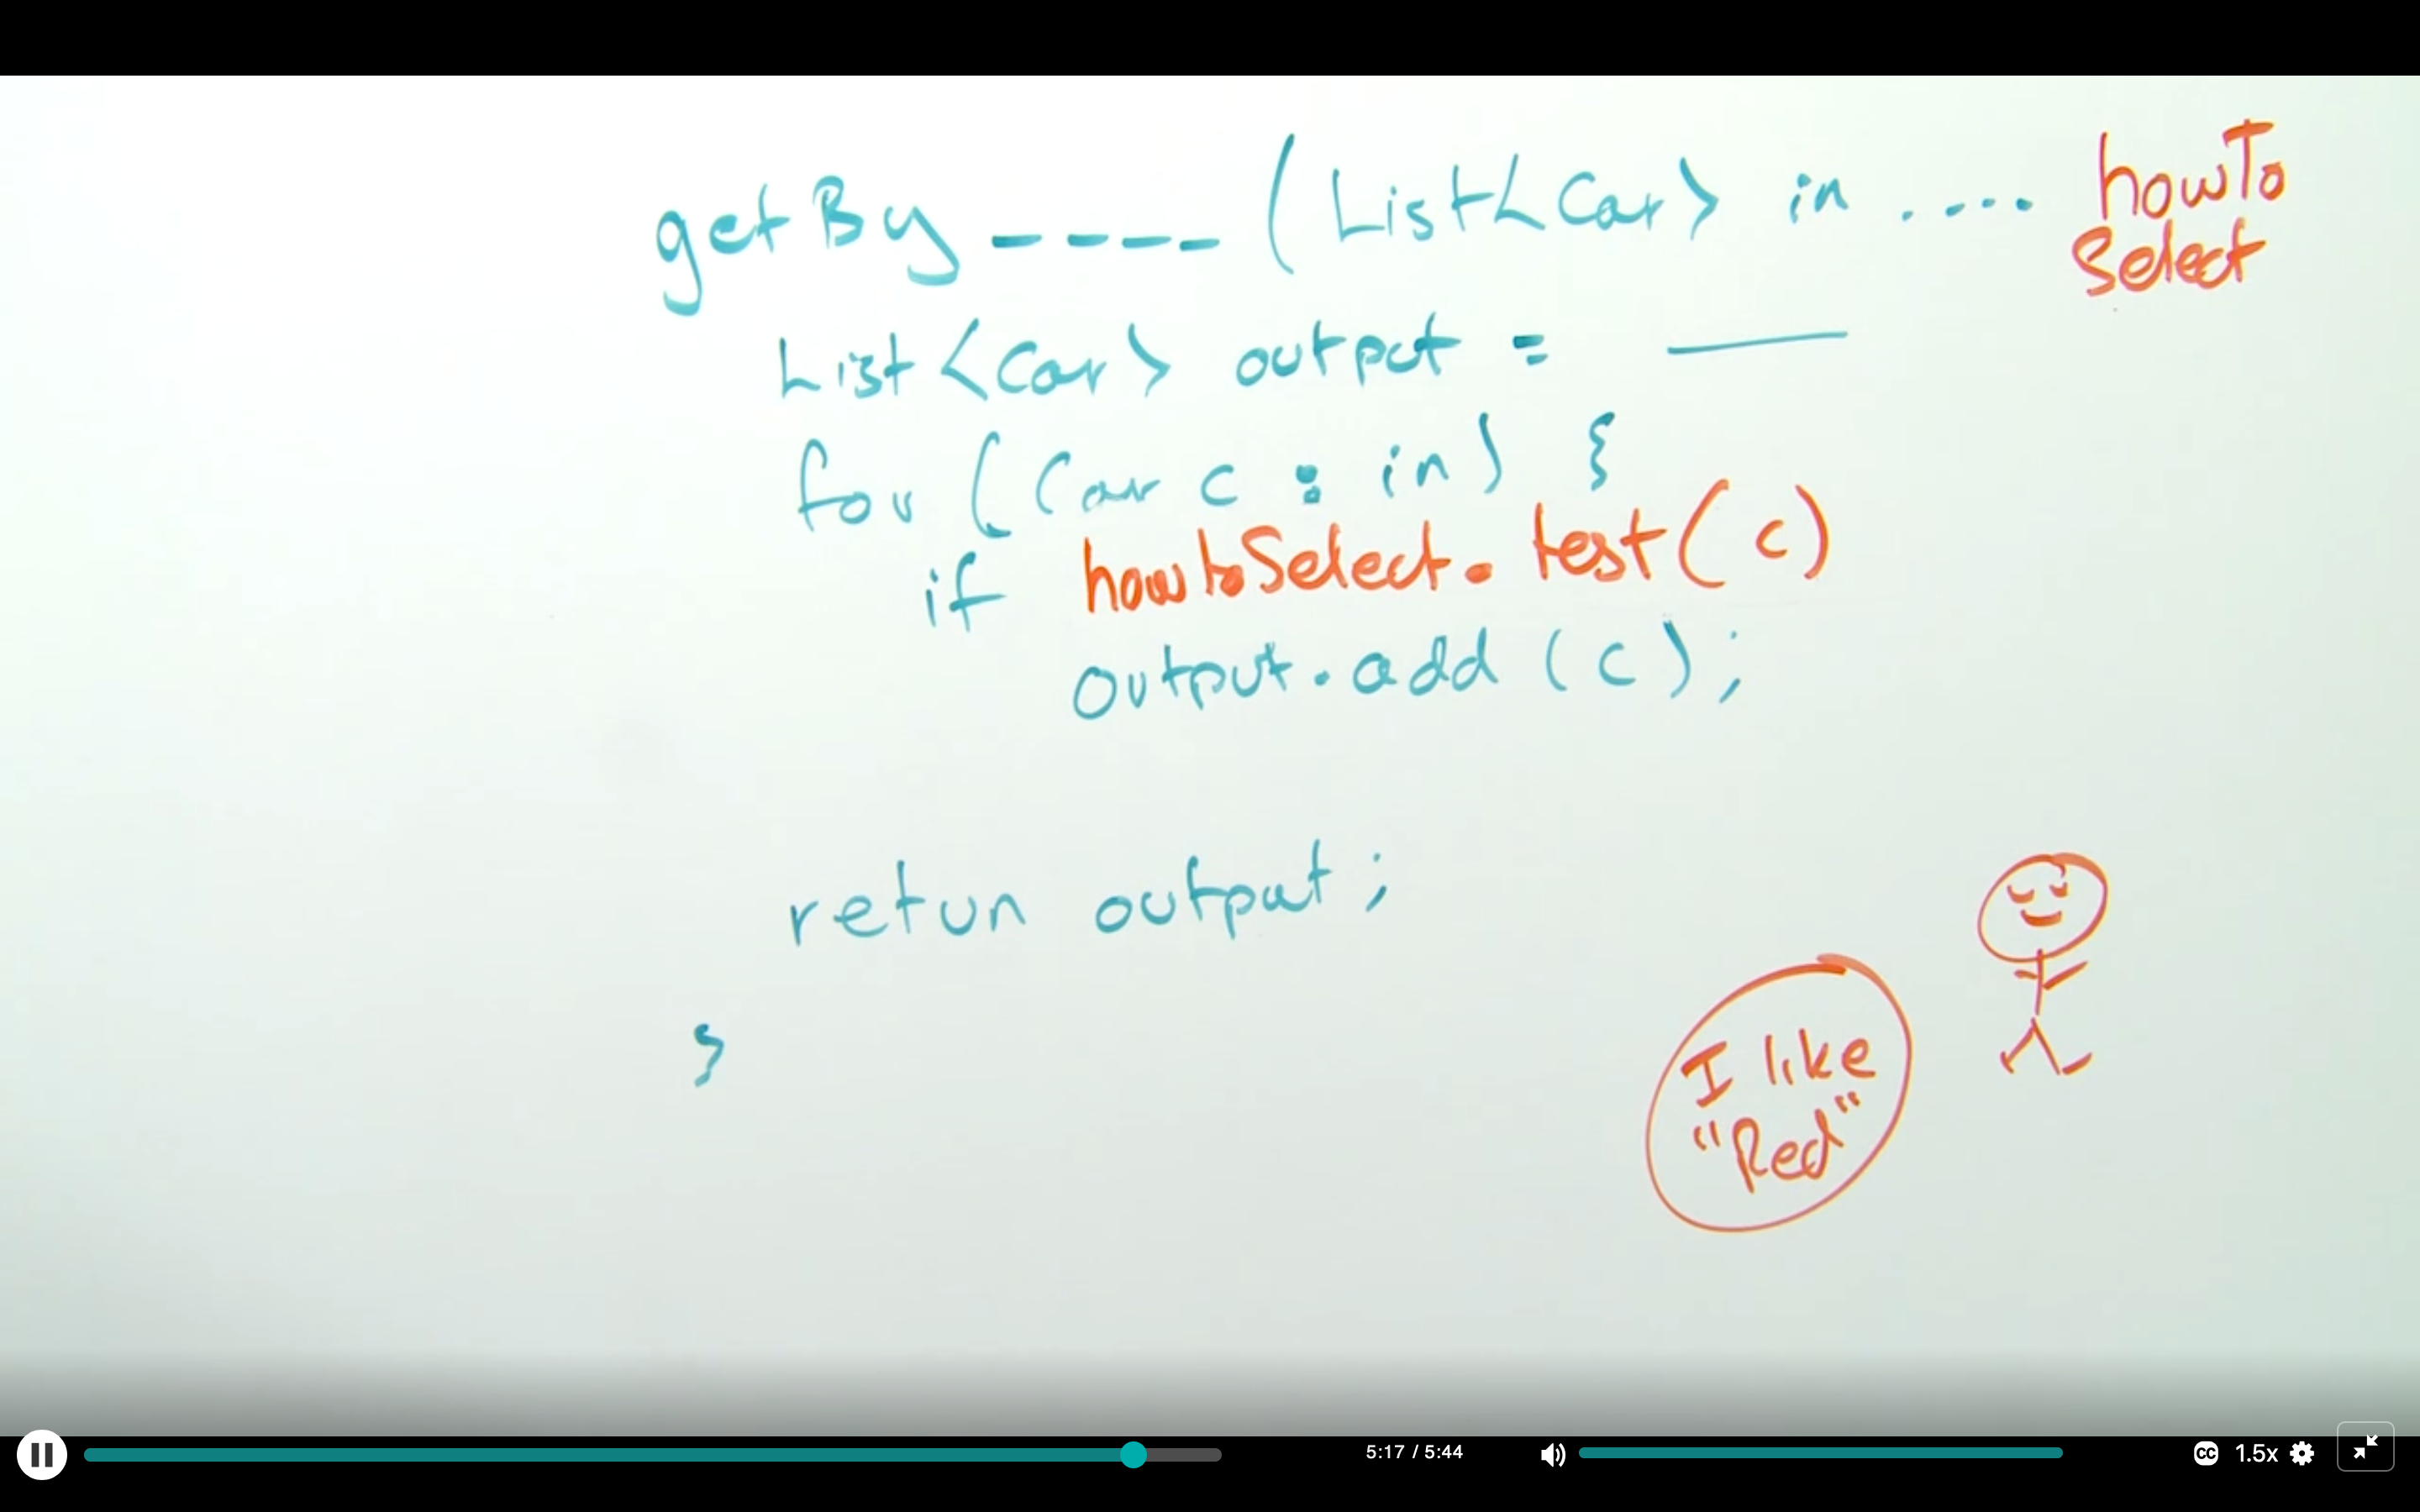 getBy ---- (List<Car> in .... howTo
Select
List<Car> output = ___
for (Car c : in) {
if howtoSelect.test(c)
output.add(c);
retun output;
}
I like
"Red"
5:17 / 5:44
CC
1.5x